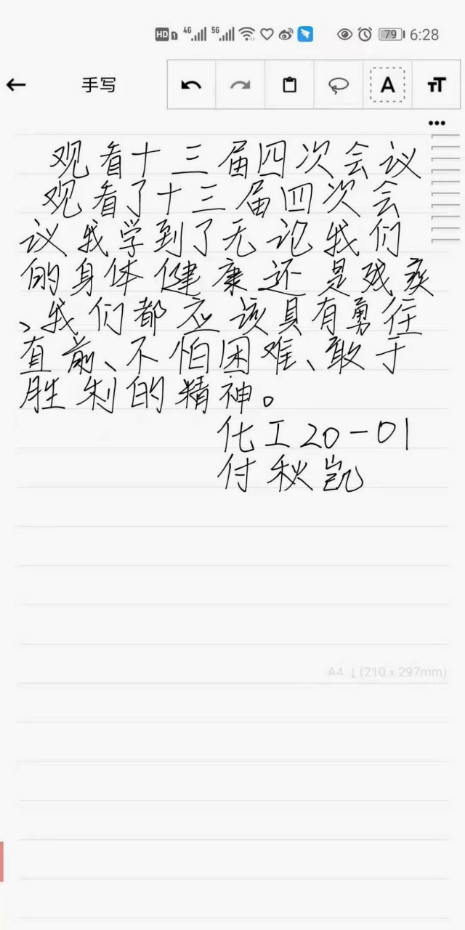 HD 4G 5G 79 6:28
手写 A TT
观看十三届四次会议
观看了十三届四次会
议我学到了无论我们
的身体健康还是残疾
、我们都应该具有勇往
直前、不怕困难、敢于
胜利的精神。
化工20-01
付秋凯
A4 ↓(210 x 297mm)